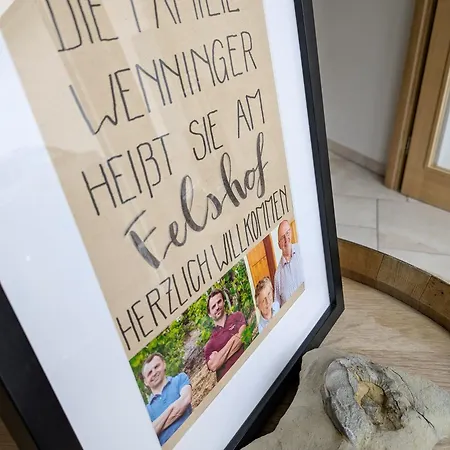 DIE FAMILIE
WENNINGER
HEIẞT SIE AM
Felshof
HERZLICH WILLKOMMEN